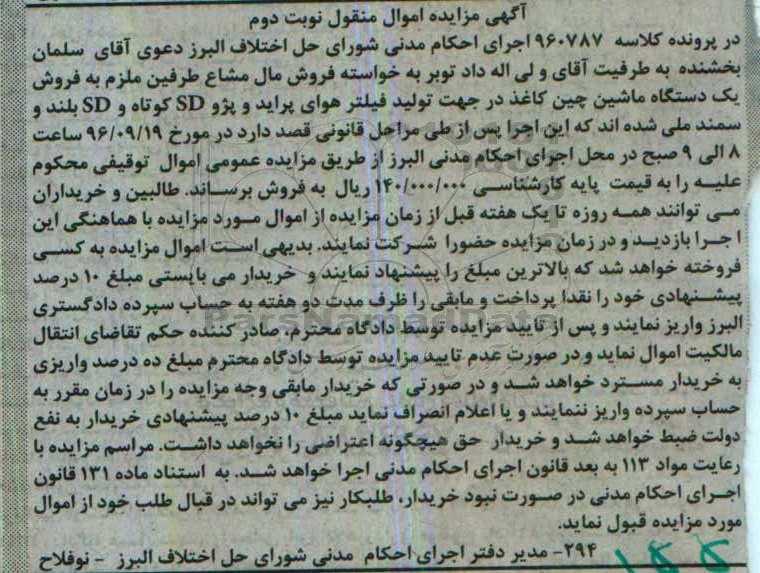 آگهی مزایده اموال منقول نوبت دوم
در پرونده کلاسه ۹۶۰۷۸۷ اجرای احکام مدنی شورای حل اختلاف البرز دعوی آقای سلمان
بخشنده به طرفیت آقای و لی اله داد توبر به خواسته فروش مال مشاع طرفین ملزم به فروش
یک دستگاه ماشین چین کاغذ در جهت تولید فیلتر هوای پراید و پژو SD کوتاه و SD بلند و
سمند ملی شده اند که این اجرا پس از طی مراحل قانونی قصد دارد در مورخ ۹۶/۰۹/۱۹ ساعت
۸ الی ۹ صبح در محل اجرای احکام مدنی البرز از طریق مزایده عمومی اموال توقیفی محکوم
علیه را به قیمت پایه کارشناسی ۱۴۰/۰۰۰/۰۰۰ ریال به فروش برساند. طالبین و خریداران
می توانند همه روزه تا یک هفته قبل از زمان مزایده از اموال مورد مزایده با هماهنگی این
ا جرا بازدید و در زمان مزایده حضورا شرکت نمایند. بدیهی است اموال مزایده به کسی
فروخته خواهد شد که بالاترین مبلغ را پیشنهاد نمایند و خریدار می بایستی مبلغ ۱۰ درصد
پیشنهادی خود را نقدا پرداخت و مابقی را ظرف مدت دو هفته به حساب سپرده دادگستری
البرز واریز نمایند و پس از تایید مزایده توسط دادگاه محترم، صادر کننده حکم تقاضای انتقال
مالکیت اموال نماید و در صورت عدم تایید مزایده توسط دادگاه محترم مبلغ ده درصد واریزی
به خریدار مسترد خواهد شد و در صورتی که خریدار مابقی وجه مزایده را در زمان مقرر به
حساب سپرده واریز ننمایند و یا اعلام انصراف نماید مبلغ ۱۰ درصد پیشنهادی خریدار به نفع
دولت ضبط خواهد شد و خریدار حق هیچگونه اعتراضی را نخواهد داشت. مراسم مزایده با
رعایت مواد ۱۱۳ به بعد قانون اجرای احکام مدنی اجرا خواهد شد. به استناد ماده ۱۳۱ قانون
اجرای احکام مدنی در صورت نبود خریدار، طلبکار نیز می تواند در قبال طلب خود از اموال
مورد مزایده قبول نماید.
۲۹۴- مدیر دفتر اجرای احکام مدنی شورای حل اختلاف البرز - نوفلاح
ParsNamadData